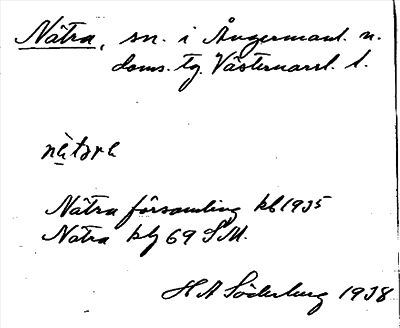 Nätra, sn. i Ångermanl. n.
doms. tg. Västernorrl. l.
Nätra församling kb 1935
Nätra blg 69 S.M.
H A Söderberg 1938